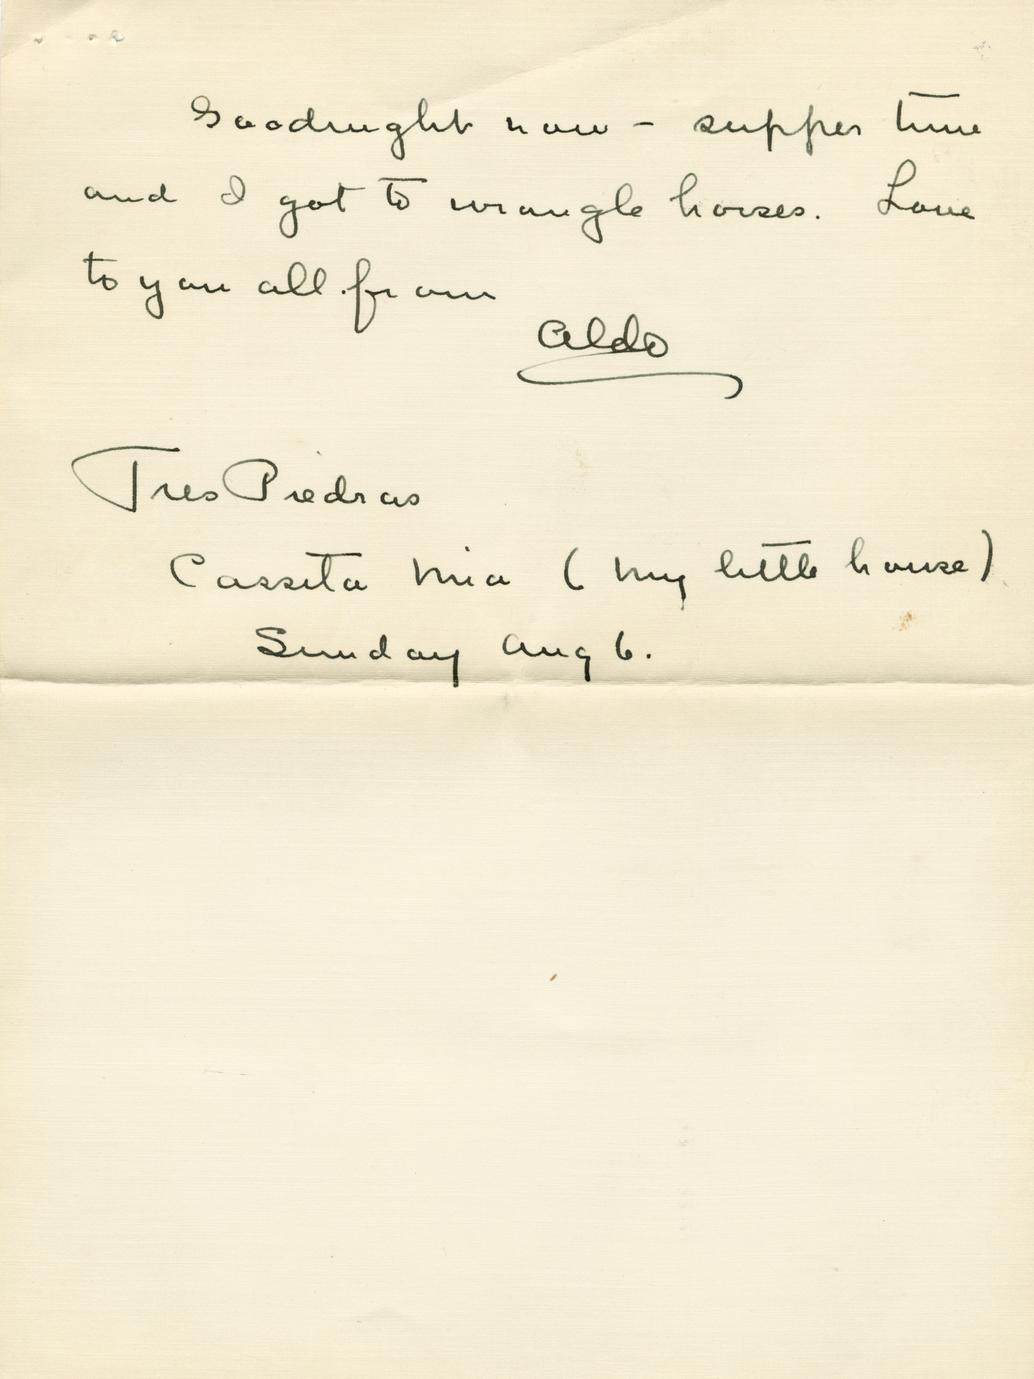 Goodnight now - supper time
and I got to wrangle horses. Love
to you all from
Aldo
Tres Piedras
Cassita Mia (My little house)
Sunday Aug 6.